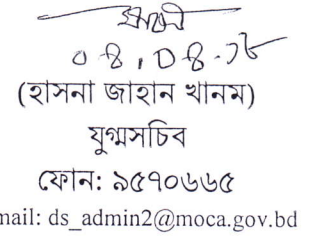 ০৪.০৪.১৮
(হাসনা জাহান খানম)
যুগ্মসচিব
ফোন: ৯৫৭০৬৬৫
mail: ds_admin2@moca.gov.bd